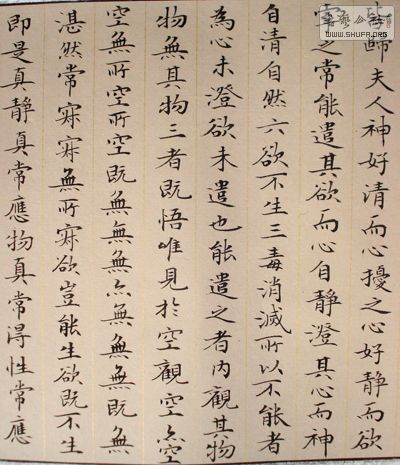 歸夫人神好清而心擾之心好静而欲
牽之常能遣其欲而心自静澄其心而神
自清自然六欲不生三毒消滅所以不能者
為心未澄欲未遣也能遣之者内觀其物
物無其物三者既悟唯見於空觀空亦空
空無所空所空既無無無亦無無無既無
湛然常寂寂無所寂欲豈能生欲既不生
即是真静真常應物真常得性常應
WWW.SHUFA.ORG